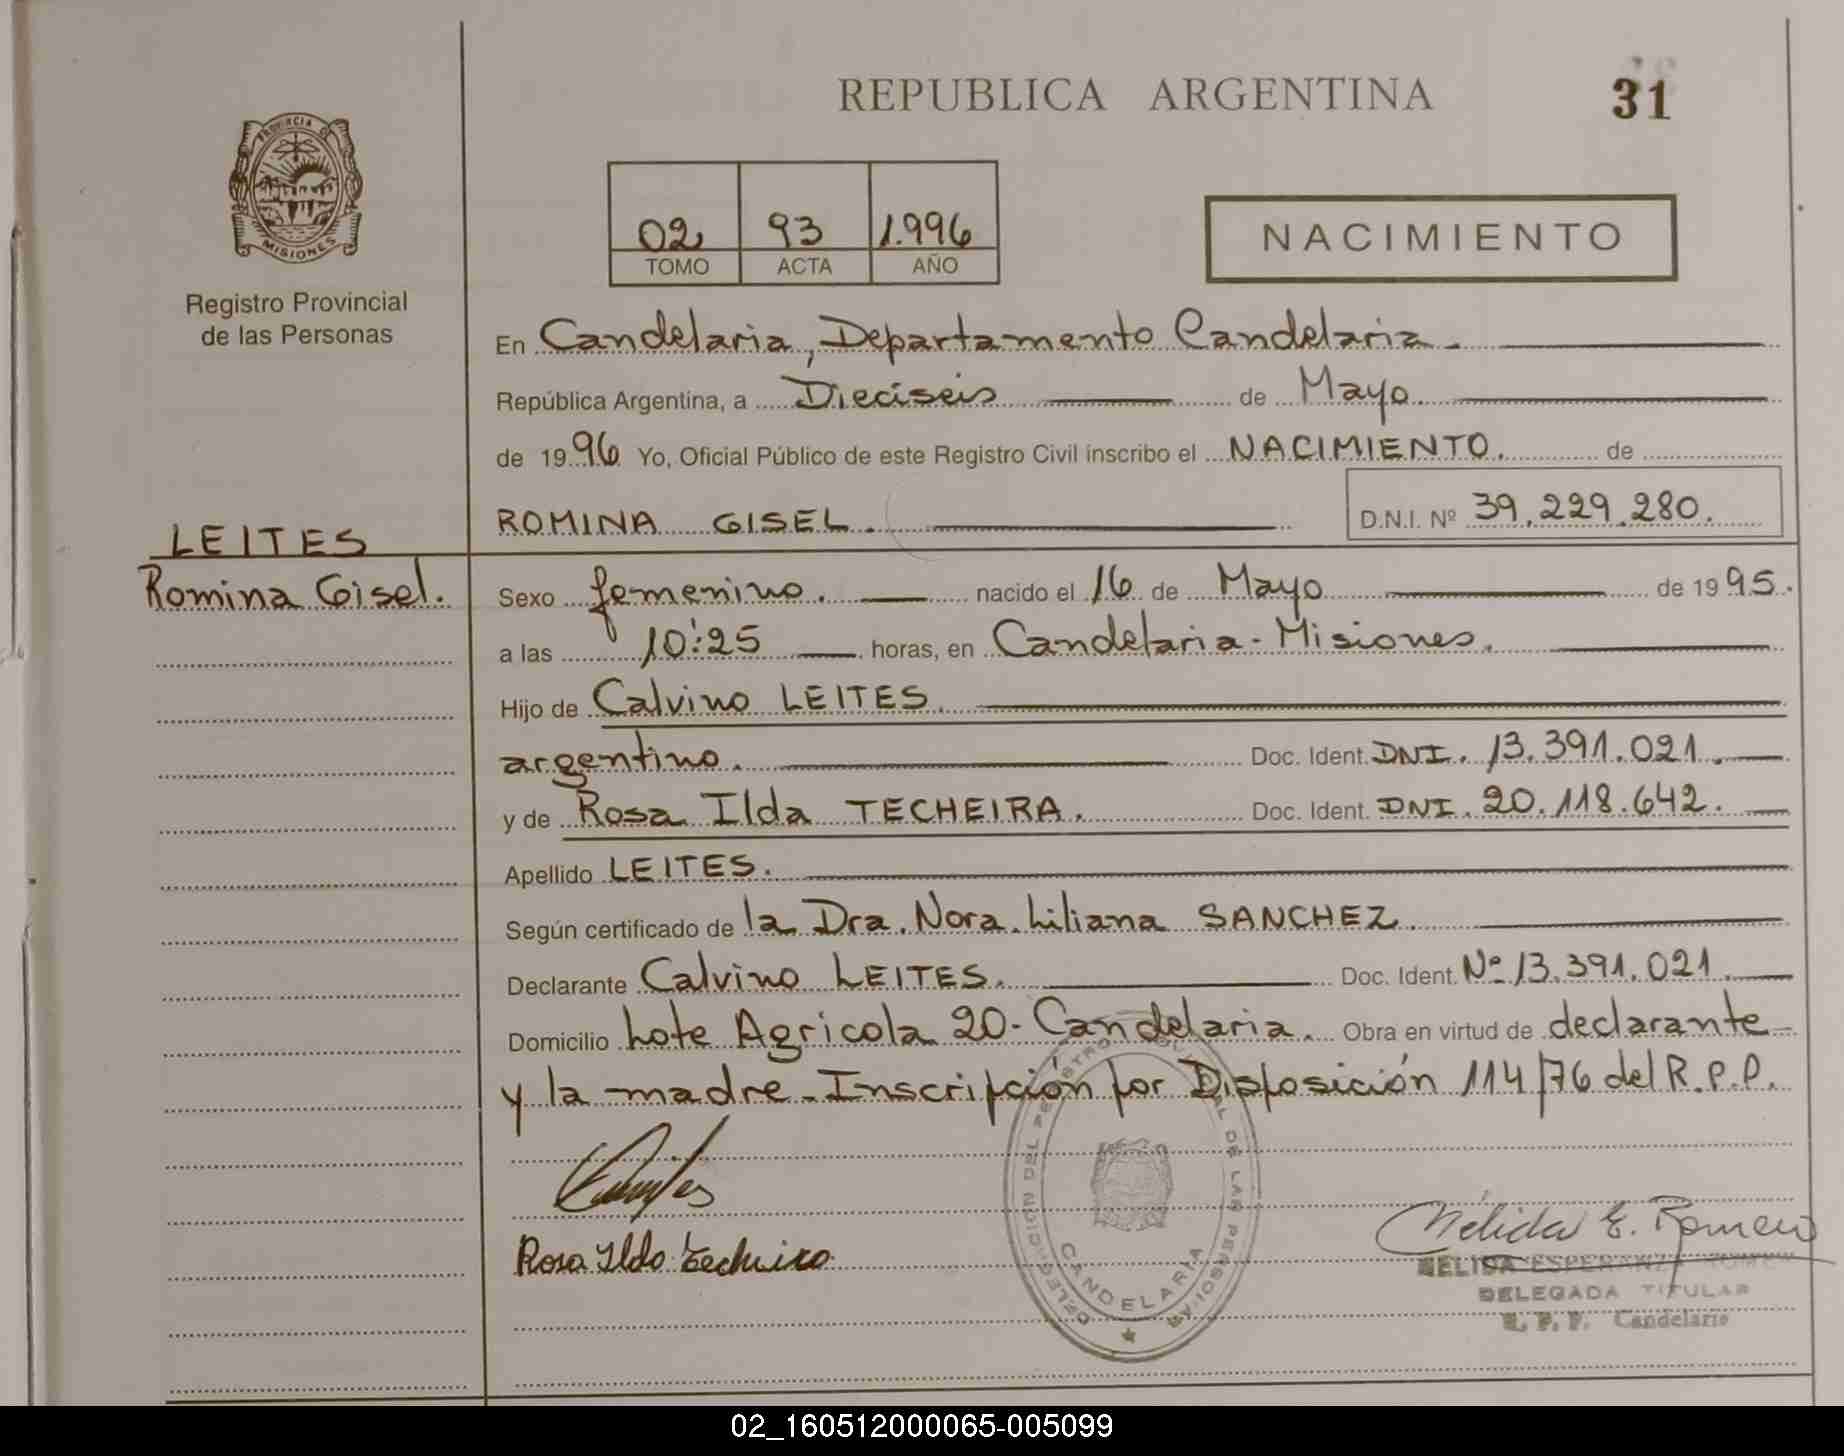 REPUBLICA ARGENTINA
31
PROVINCIA DE
MISIONES
Registro Provincial
de las Personas
02 93 1.996
TOMO ACTA AÑO
NACIMIENTO
En Candelaria, Departamento Candelaria.
República Argentina, a Dieciseis de Mayo.
de 1996 Yo, Oficial Público de este Registro Civil inscribo el NACIMIENTO. de
ROMINA GISEL. D.N.I. Nº 39.229.280.
LEITES
Romina Gisel.
Sexo femenino. nacido el 16 de Mayo de 1995.
a las 10:25 horas, en Candelaria - Misiones.
Hijo de Calvino LEITES.
argentino. Doc. Ident. DNI. 13.391.021.
y de Rosa Ilda TECHEIRA. Doc. Ident. DNI. 20.118.642.
Apellido LEITES.
Según certificado de la Dra. Nora Liliana SANCHEZ.
Declarante Calvino LEITES. Doc. Ident. Nº 13.391.021.
Domicilio Lote Agricola 20 - Candelaria. Obra en virtud de declarante
y la madre. Inscripción por Disposición 114/76 del R.P.P.
DE LAS PERSONAS
CANDELARIA
Rosa Ilda Techeira
Nélida E. Romero
NELIDA ESPERANZA ROMERO
DELEGADA TITULAR
R. P. P. Candelaria
02_160512000065-005099